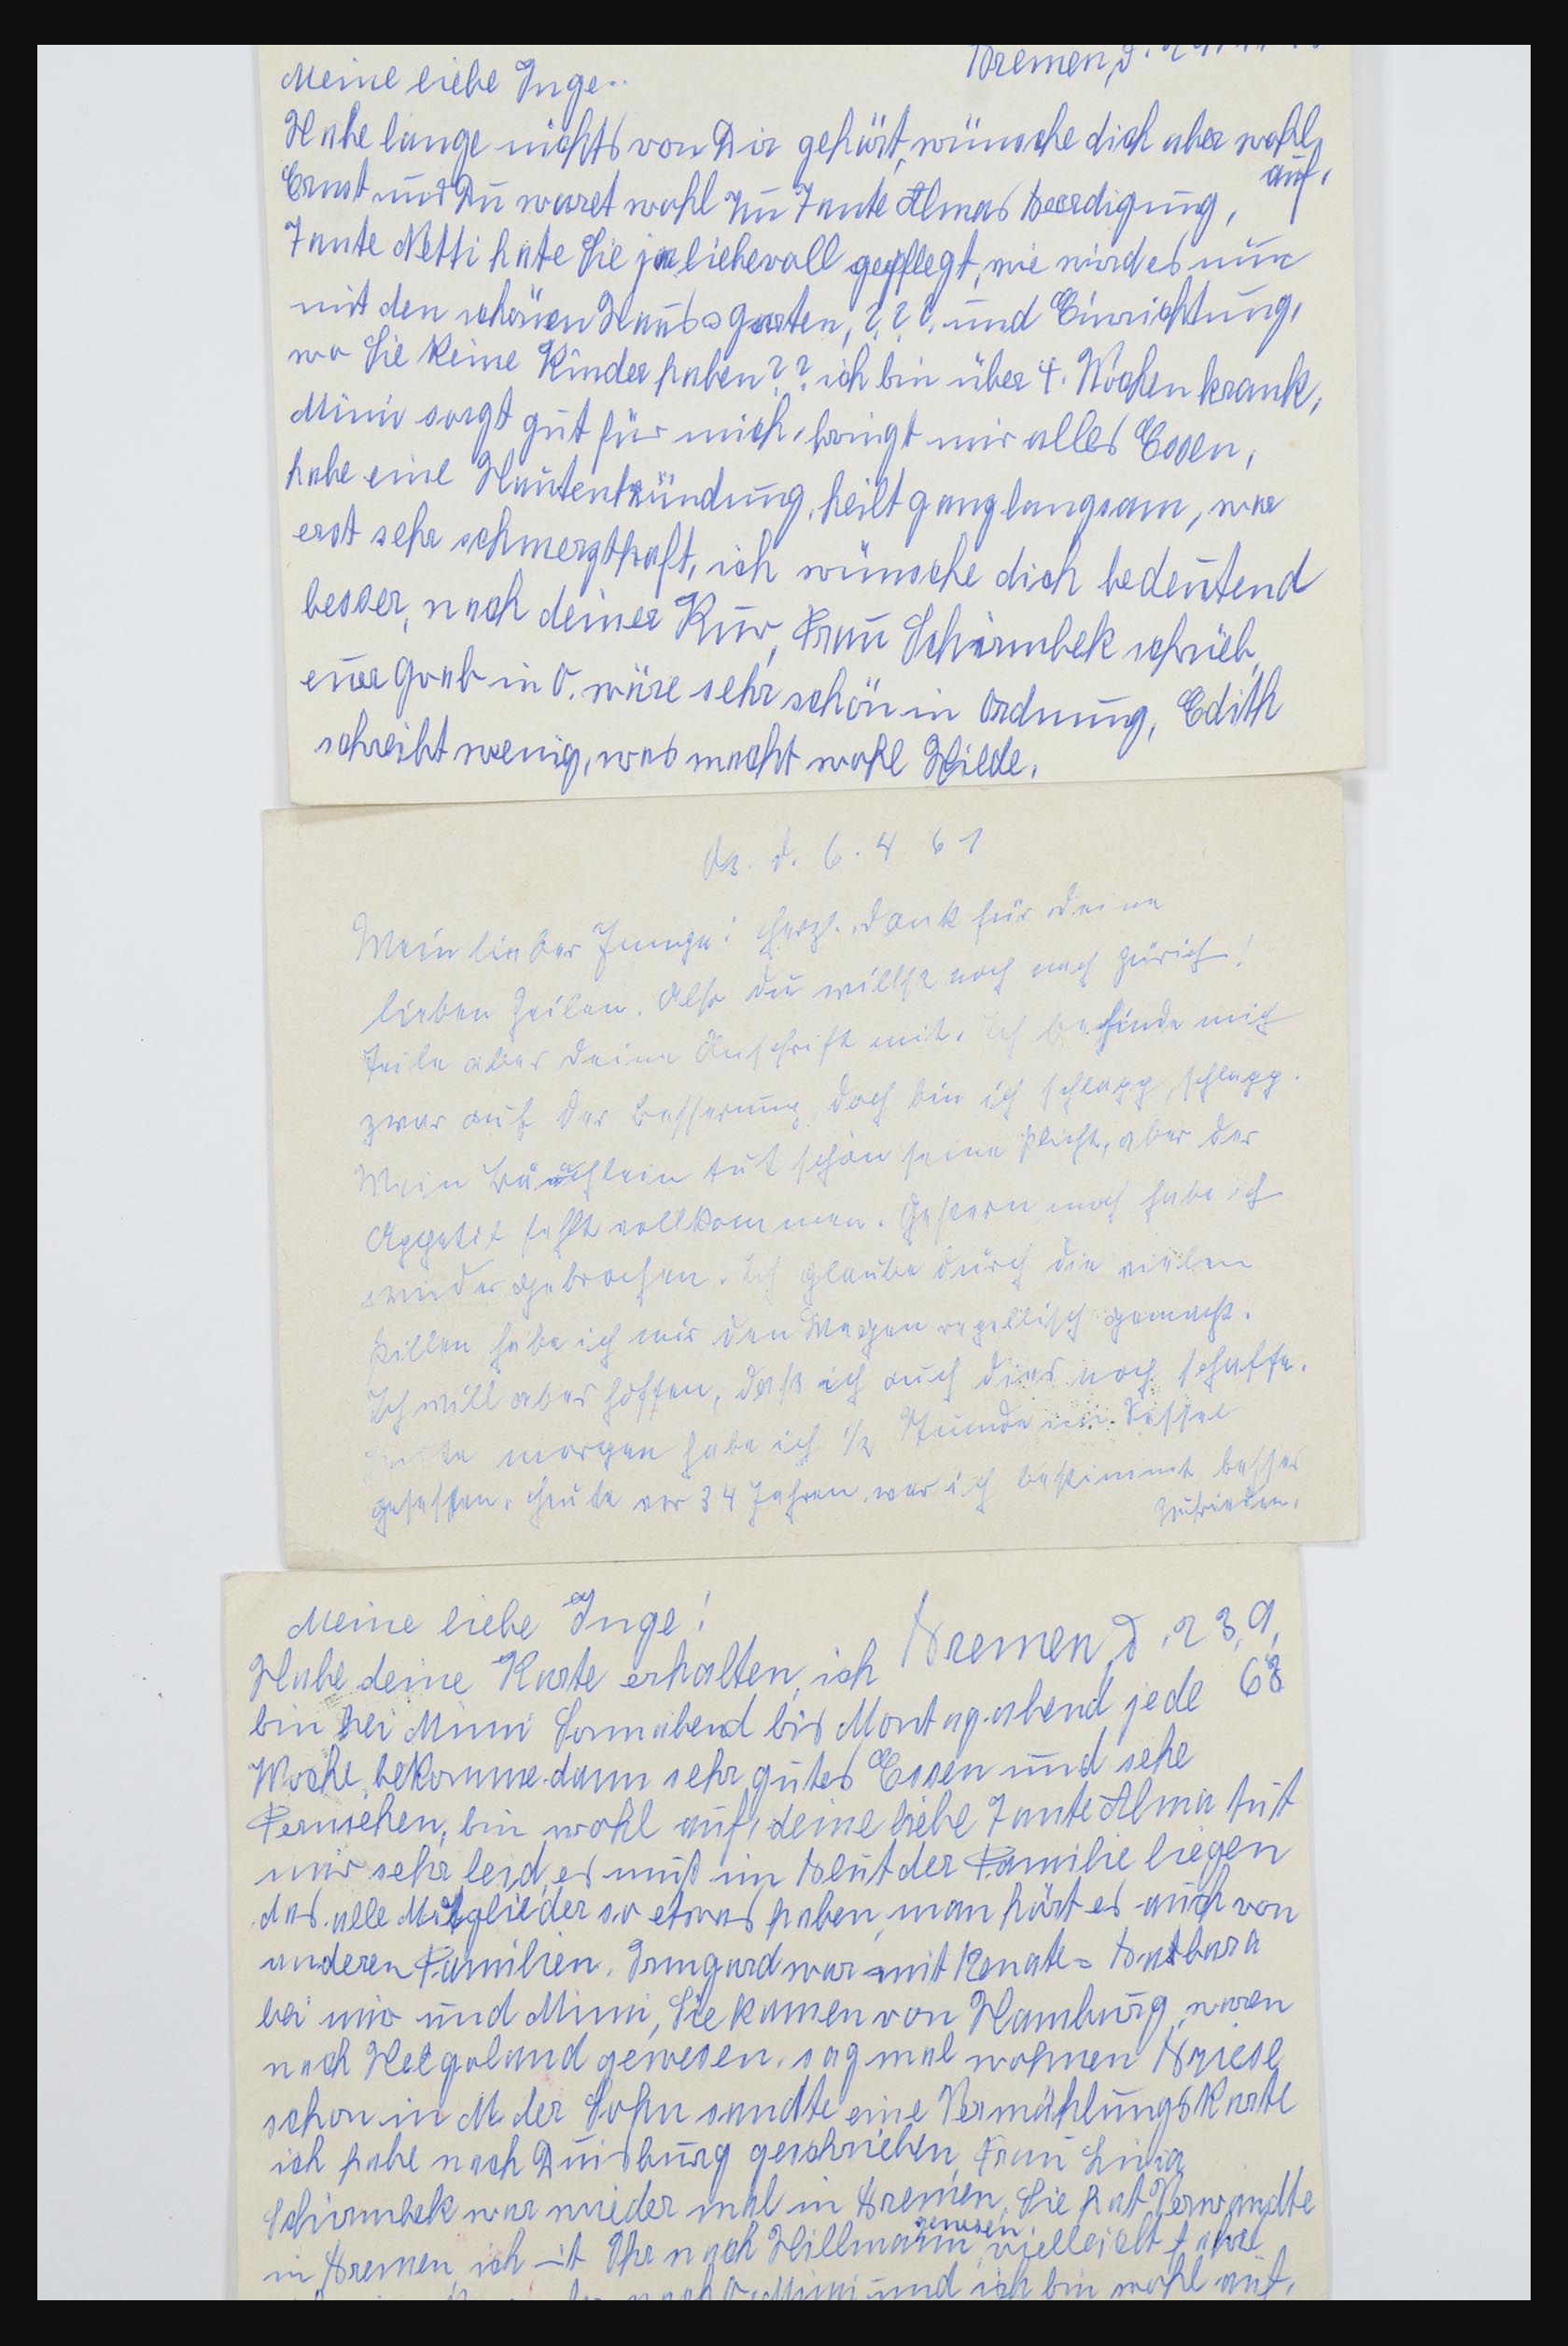 Bremen, d.
Meine liebe Inge..
Habe lange nichts von Dir gehört, wünsche dich aber wohl
auf,
Ernst und Du waret wohl zu Tante Almas Beerdigung,
Tante Netti hate Sie ja liebevoll gepflegt, wie wird es nun
mit den schönen Haus Garten, ? ? ?. und Einrichtung,
wo Sie keine Kinder haben ? ? ich bin über 4. Wochen krank,
Mimi sorgt gut für mich, bringt mir alles Essen,
habe eine Hautentzündung, heilt ganz langsam, war
erst sehr schmerzthaft, ich wünsche dich bedeutend
besser, nach deiner Kur, Frau Schirmbek schrieb,
euer Grab in O. wäre sehr schön in Ordnung, Edith
schreibt wenig, was macht wohl Hilde.
d. 6. 4 61
Mein lieber Junge! Herzl. Dank für Deine
lieben Zeilen. Also Du willst noch nach Zürich!
Teile aber Deine Anschrift mit. Ich befinde mich
zwar auf der Besserung, doch bin ich schlapp, schlapp.
Mein Bäuchlein tut schon seine Plicht, aber der
Appetit fehlt vollkommen. Gestern noch habe ich
wieder gebrochen. Ich glaube durch die vielen
Pillen habe ich mir den Magen repellisch gemacht.
Ich will aber hoffen, daß ich auch dies noch schaffe.
Heute morgen habe ich 1/2 Stunde im Sessel
gesessen. Heute vor 34 Jahren war ich bestimmt besser
zufrieden.
Meine liebe Inge! Bremen, d. 23, 9,
68
Habe deine Karte erhalten, ich
bin bei Mimi Sonnabend bis Montag abend jede
Woche, bekomme dann sehr gutes Essen und sehe
Fernsehen, bin wohl auf, deine liebe Tante Alma tut
mir sehr leid, es muß im Blut der Familie liegen
das alle Mitglieder so etwas haben, man hört es auch von
anderen Familien. Irmgard war mit Renate = Barbara
bei mir und Mimi, Sie kamen von Hamburg, waren
nach Helgoland gewesen. sag mal wohnen Briese
schon in M. der Sohn sandte eine Vermählungskarte
ich habe nach Duisburg geschrieben, Frau Livia
Schirmbek war wieder mal in Bremen, Sie hat Verwandte
gewesen.
in Bremen, ich mit Ihr nach Hillmann vielleicht fahre
nach O. Mimi und ich bin wohl auf.